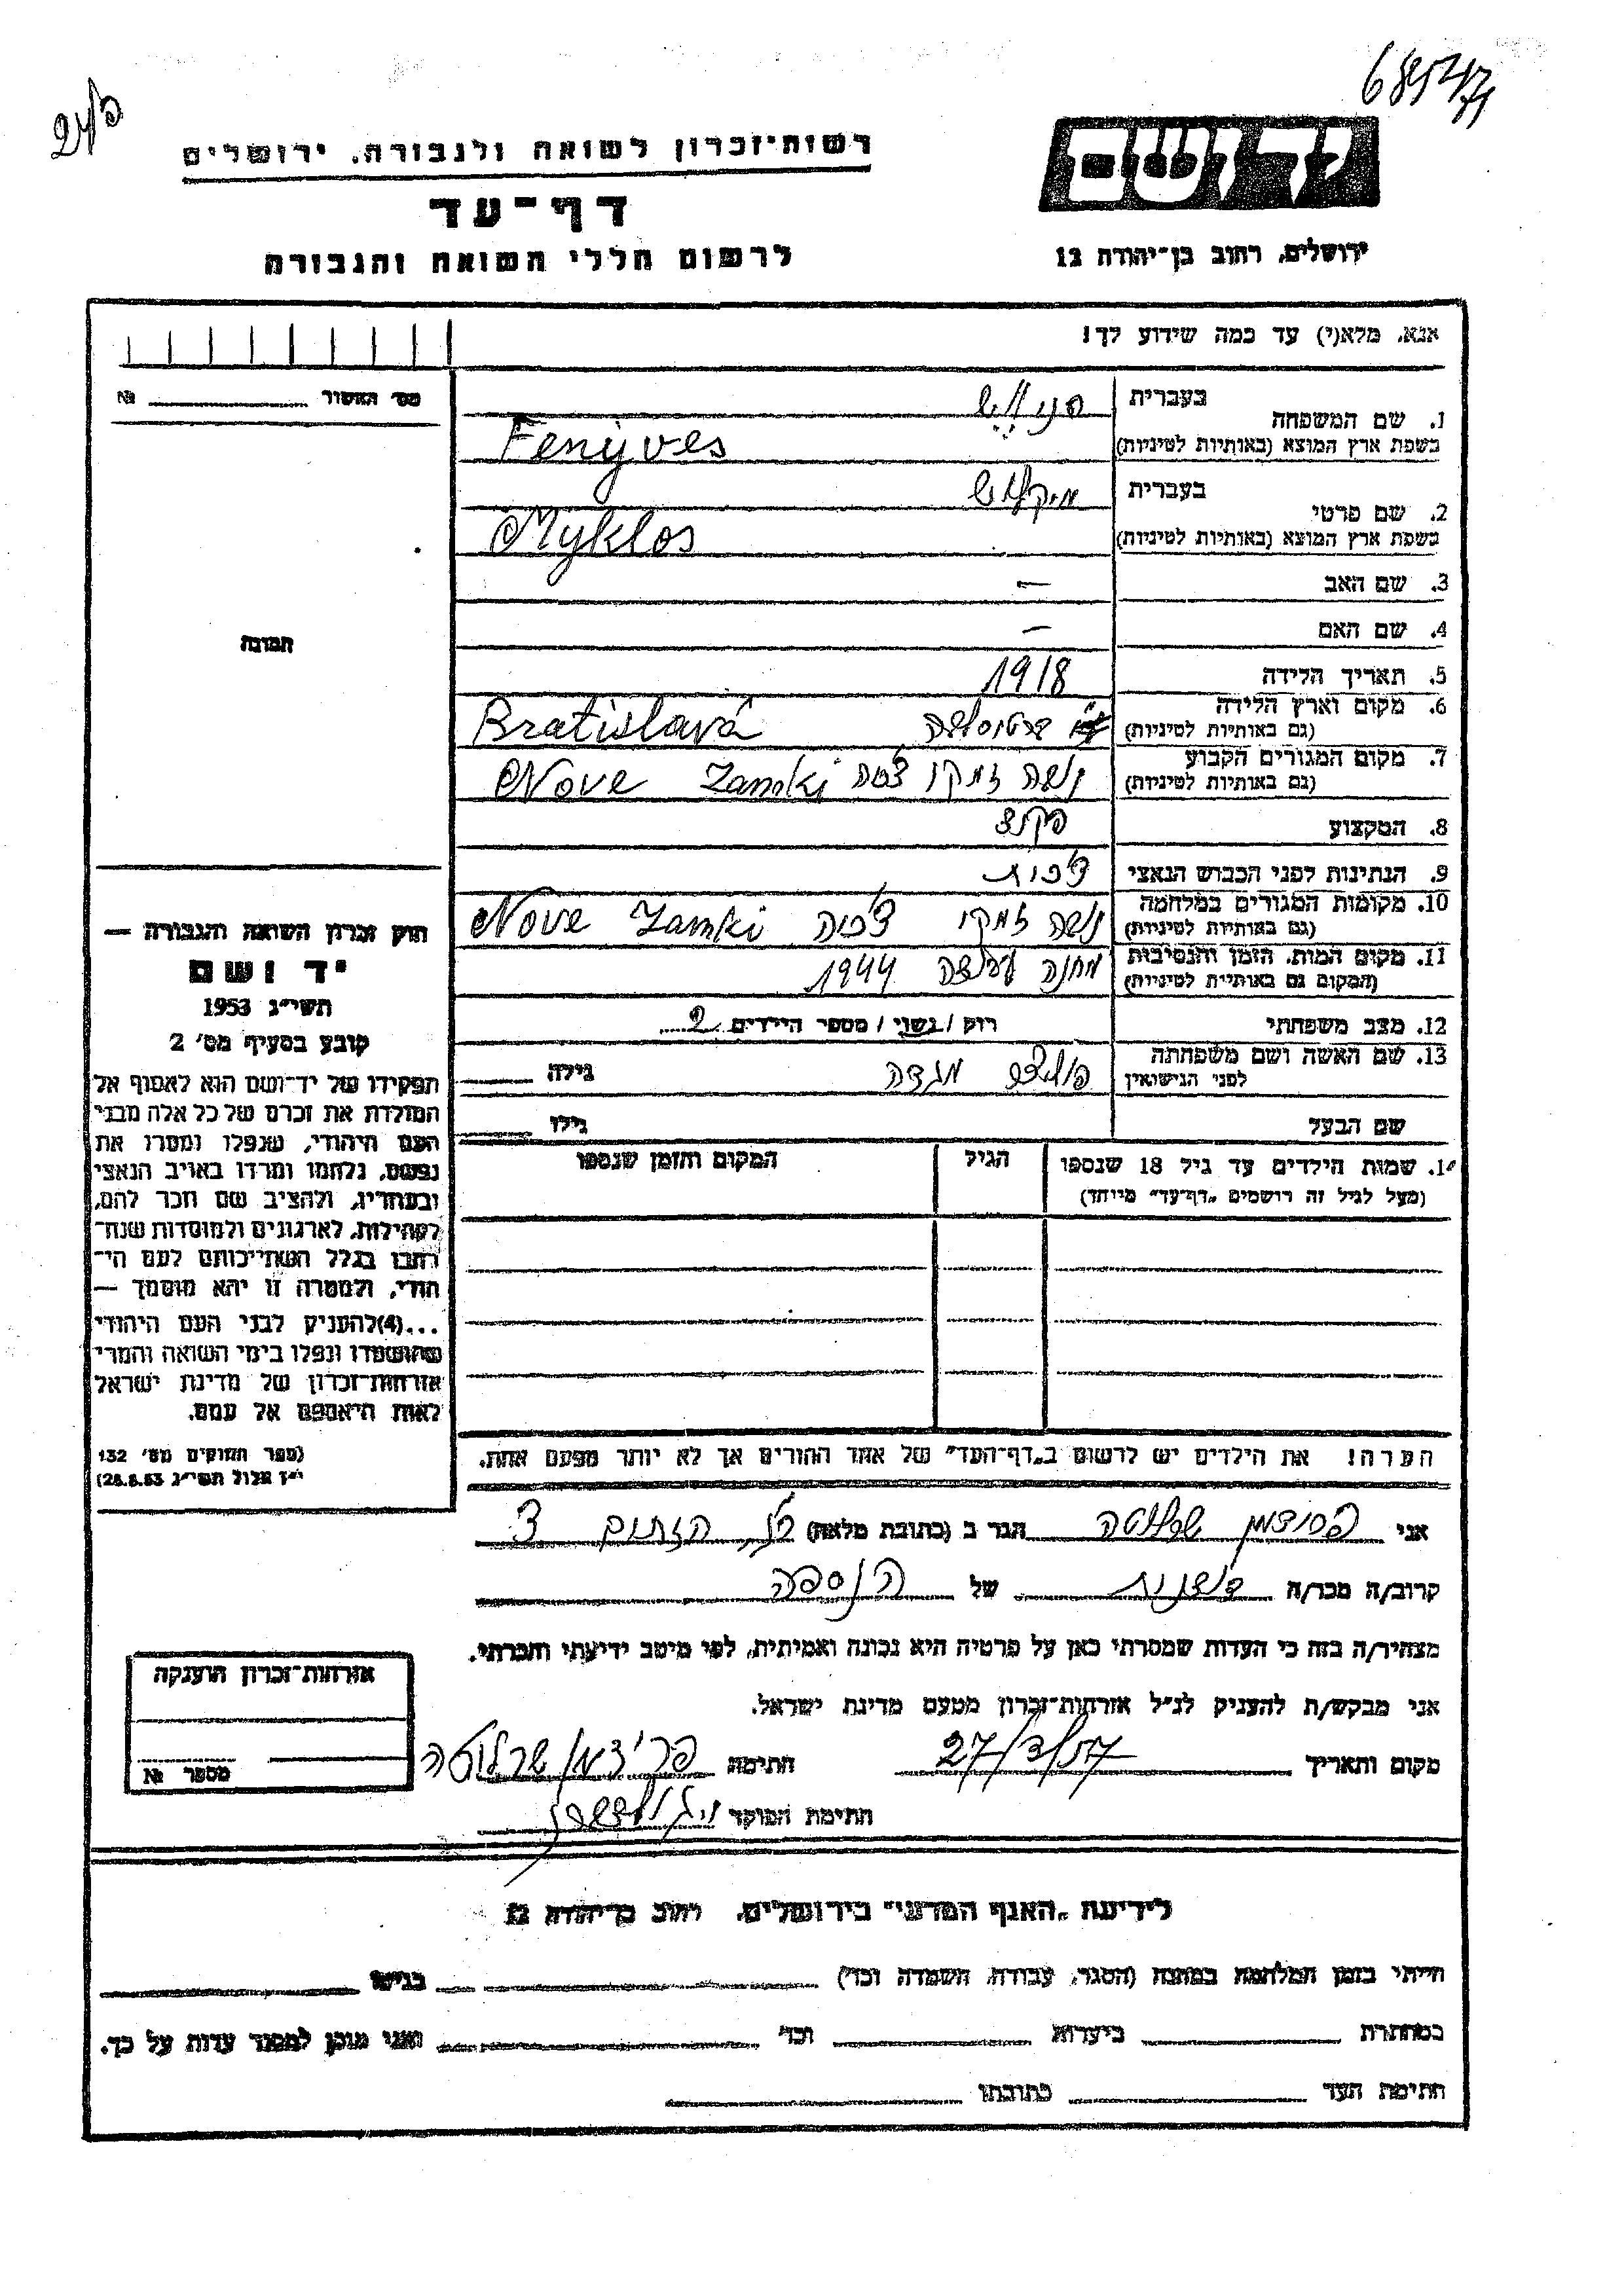 רשות־זכרון לשואה ולגבורה, ירושלים
דף־עד
לרשום חללי השואה והגבורה
ידושם
ירושלים, רחוב בן־יהודה 12
אנא, מלא(י) עד כמה שידוע לך!
מס' האשור № 
1. שם המשפחה
בעברית
בשפת ארץ המוצא (באותיות לטיניות) Fenyves
2. שם פרטי
בעברית מיקלוש
בשפת ארץ המוצא (באותיות לטיניות) Myklos
3. שם האב —
4. שם האם —
5. תאריך הלידה 1918
6. מקום וארץ הלידה
(גם באותיות לטיניות) ברטיסלבה Bratislavá
7. מקום המגורים הקבוע
(גם באותיות לטיניות) נובה זמקי Nove Zamki
8. המקצוע
9. הנתינות לפני הכבוש הנאצי
10. מקומות המגורים במלחמה
(גם באותיות לטיניות) נובה זמקי Nove Zamki
11. מקום המות, הזמן והנסיבות
(המקום גם באותיות לטיניות) מחנה עבודה 1944
12. מצב משפחתי רווק / נשוי / מספר הילדים 2
13. שם האשה ושם משפחתה
לפני הנישואין מגדה גילה
שם הבעל גילו
1. שמות הילדים עד גיל 18 שנספו
(מעל לגיל זה רושמים „דף־עד" מיוחד)
הגיל
המקום והזמן שנספו
הערה! את הילדים יש לרשום ב„דף־העד" של אחד ההורים אך לא יותר מפעם אחת.
תמונה
חוק זכרון השואה והגבורה —
יד ושם
תשי"ג 1953
קובע בסעיף מס' 2
תפקידו של יד־ושם הוא לאסוף אל
המולדת את זכרם של כל אלה מבני
העם היהודי, שנפלו ומסרו את
נפשם, נלחמו ומרדו באויב הנאצי
ובעוזריו, ולהציב שם וזכר להם,
לקהילות, לארגונים ולמוסדות שנח־
רבו בגלל השתייכותם לעם הי־
הודי, ולמטרה זו יהא מוסמך —
...(4) להעניק לבני העם היהודי
שהושמדו ונפלו בימי השואה והמרי
אזרחות־זכרון של מדינת ישראל
לאות היאספם אל עמם.
(ספר החוקים מס' 132
י"ז אלול תשי"ג 28.8.53)
אני פרידמן שרלוטה הגר ב (כתובת מלאה)
קרוב/ה מכר/ה של הנספה
מצהיר/ה בזה כי העדות שמסרתי כאן על פרטיה היא נכונה ואמיתית, לפי מיטב ידיעתי והכרתי.
אני מבקש/ת להעניק לנ"ל אזרחות־זכרון מטעם מדינת ישראל.
מקום ותאריך 27/3/57 חתימה פרידמן שרלוטה
חתימת הפוקד
אזרחות־זכרון הוענקה
מספר №
לידיעת „האגף המדעי" בירושלים, רחוב בן־יהודה 12
הייתי בזמן המלחמה במחנה (הסגר, עבודה, השמדה וכד') בגיטו
במחתרת ביערות וכד' ואני מוכן למסור עדות על כך.
חתימת העד כתובתו